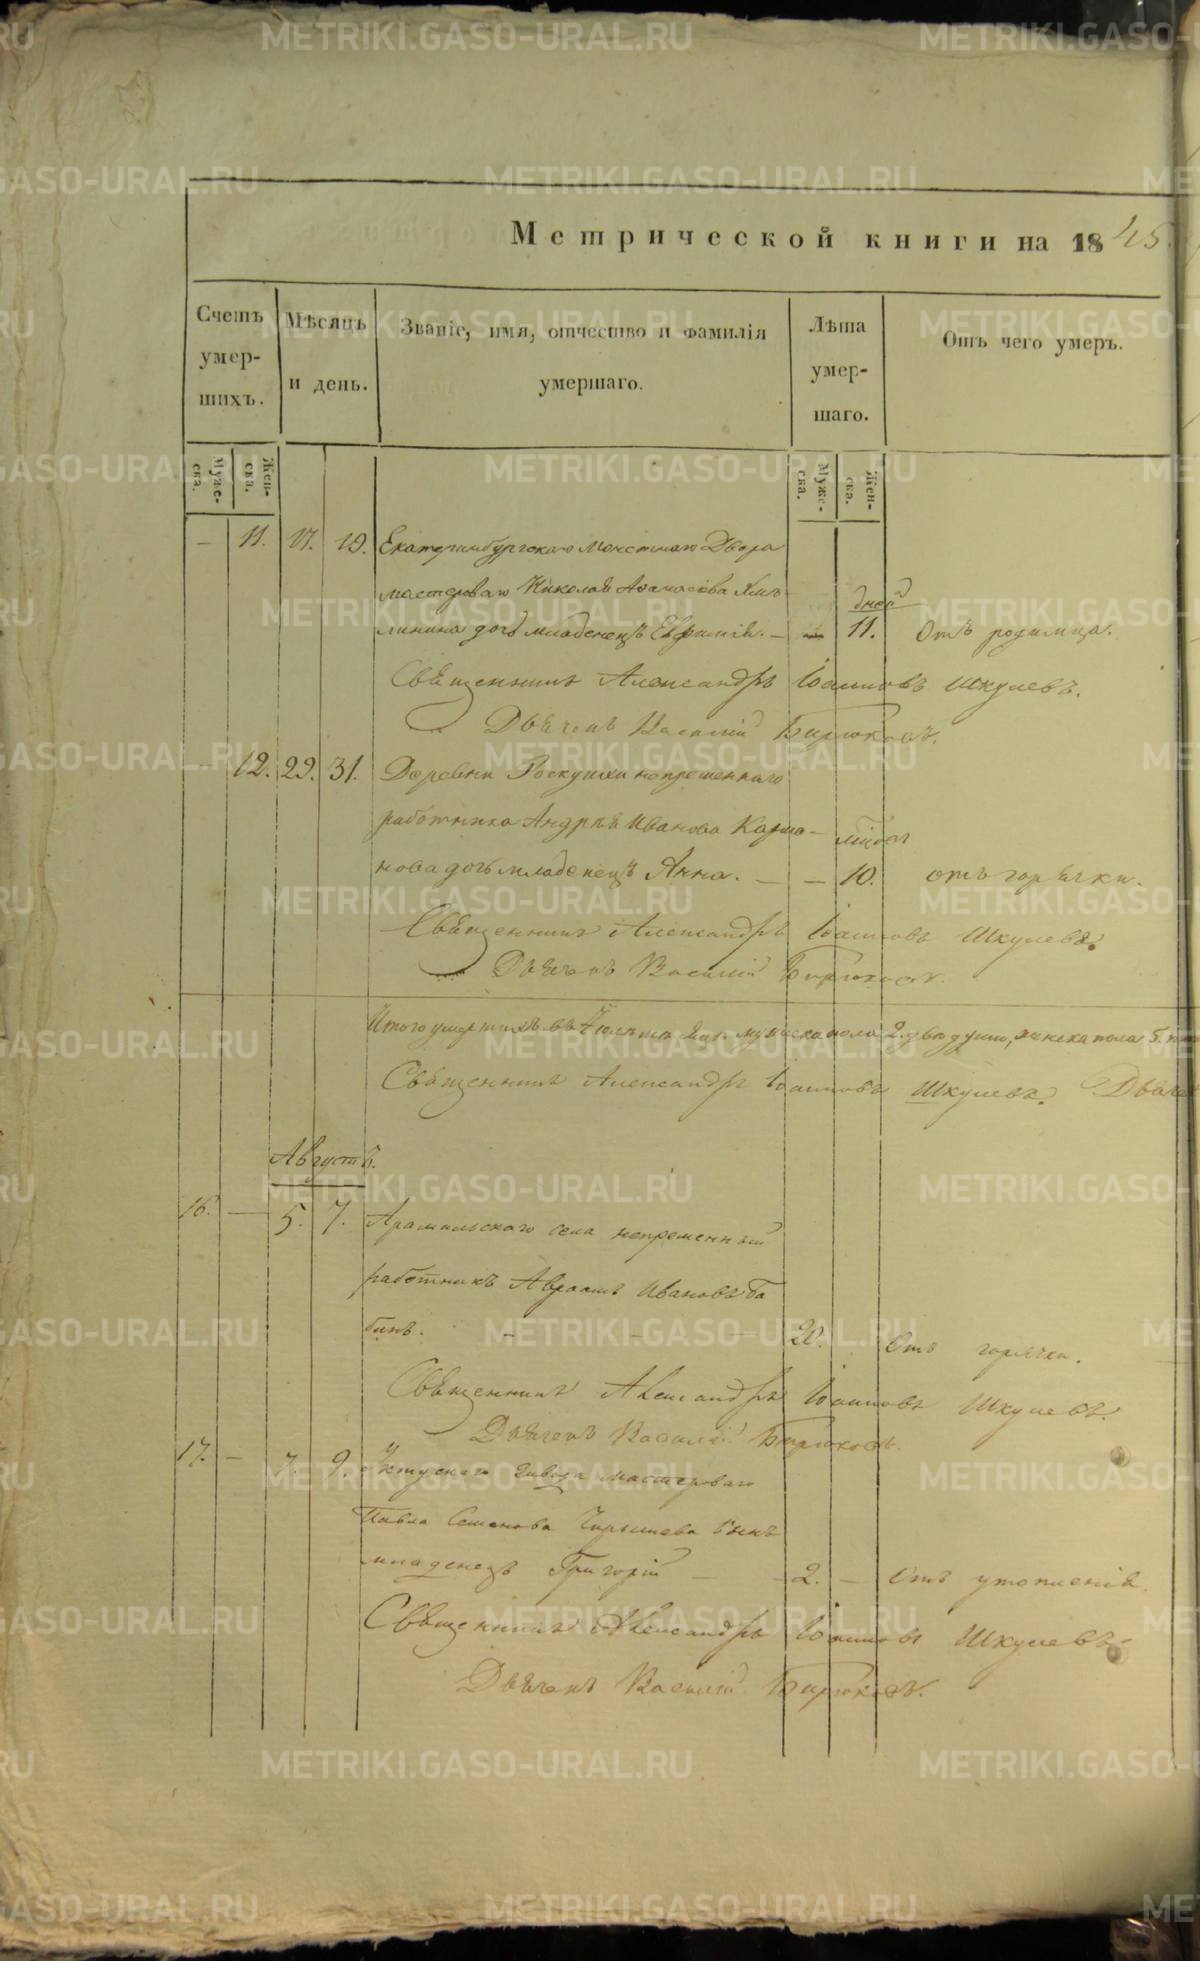 Метрической книги на 1845.
Счетъ умер-шихъ.
Мѣсяцъ и день.
Званіе, имя, отчество и фамилія умершаго.
Лѣта умер-шаго.
Отъ чего умеръ.
Муже-ска.
Жен-ска.
Муже-ска.
Жен-ска.
— 11. 17. 19. Екатеринбургскаго Монетнаго Двора
мастероваго Николая Аѳанасіева
дней
дочь младенецъ — 11. Отъ родимца.
Священникъ Александръ Іоанновъ Шкулевъ.
Дьячекъ Василій Бирюковъ.
— 12. 29. 31. Деревни непременнаго
работника Андрѣя Иванова Карма-
нова дочь младенецъ Анна. — — 10. отъ горячки.
Священникъ Александръ Іоанновъ Шкулевъ.
Дьячекъ Василій Бирюковъ.
Итого умершихъ въ Іюлѣ мужеска пола 2. двѣ души, женска пола 5.
Священникъ Александръ Іоанновъ Шкулевъ.
Августъ.
16. — 5. 7. Арамильскаго села непременный
работникъ Авраамъ Ивановъ Ба
бинъ. — — — 20. Отъ горячки.
Священникъ Александръ Іоанновъ Шкулевъ.
Дьячекъ Василій Бирюковъ.
17. — 7. 9. Уктускаго завода мастероваго
Павла Семенова сынъ
младенецъ Григорій — — 2. — Отъ утопленія.
Священникъ Александръ Іоанновъ Шкулевъ.
Дьячекъ Василій Бирюковъ.
METRIKI.GASO-URAL.RU